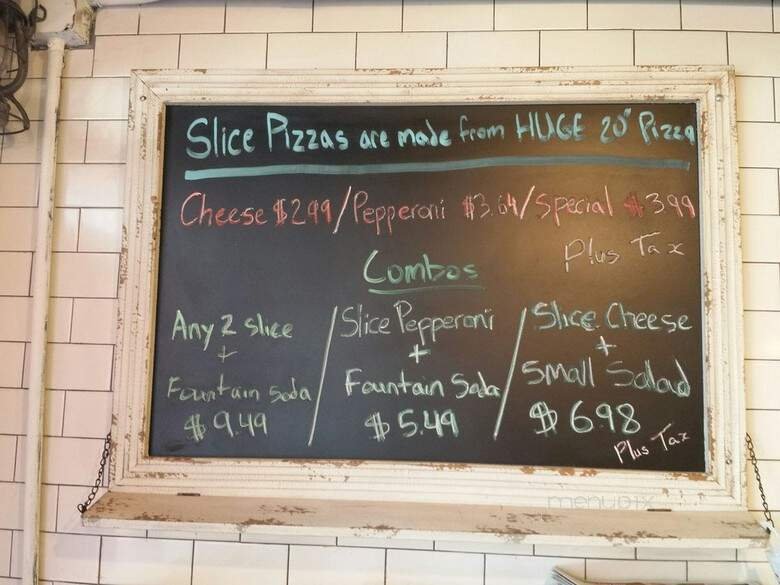 Slice Pizzas are made from HUGE 20" Pizza
Cheese $2.99/Pepperoni $3.64/Special $3.99
Plus Tax
Combos
Any 2 slice
+
Fountain Soda
$9.49
/
Slice Pepperoni
+
Fountain Soda
$5.49
/
Slice Cheese
+
Small Salad
$6.98
Plus Tax
menupix